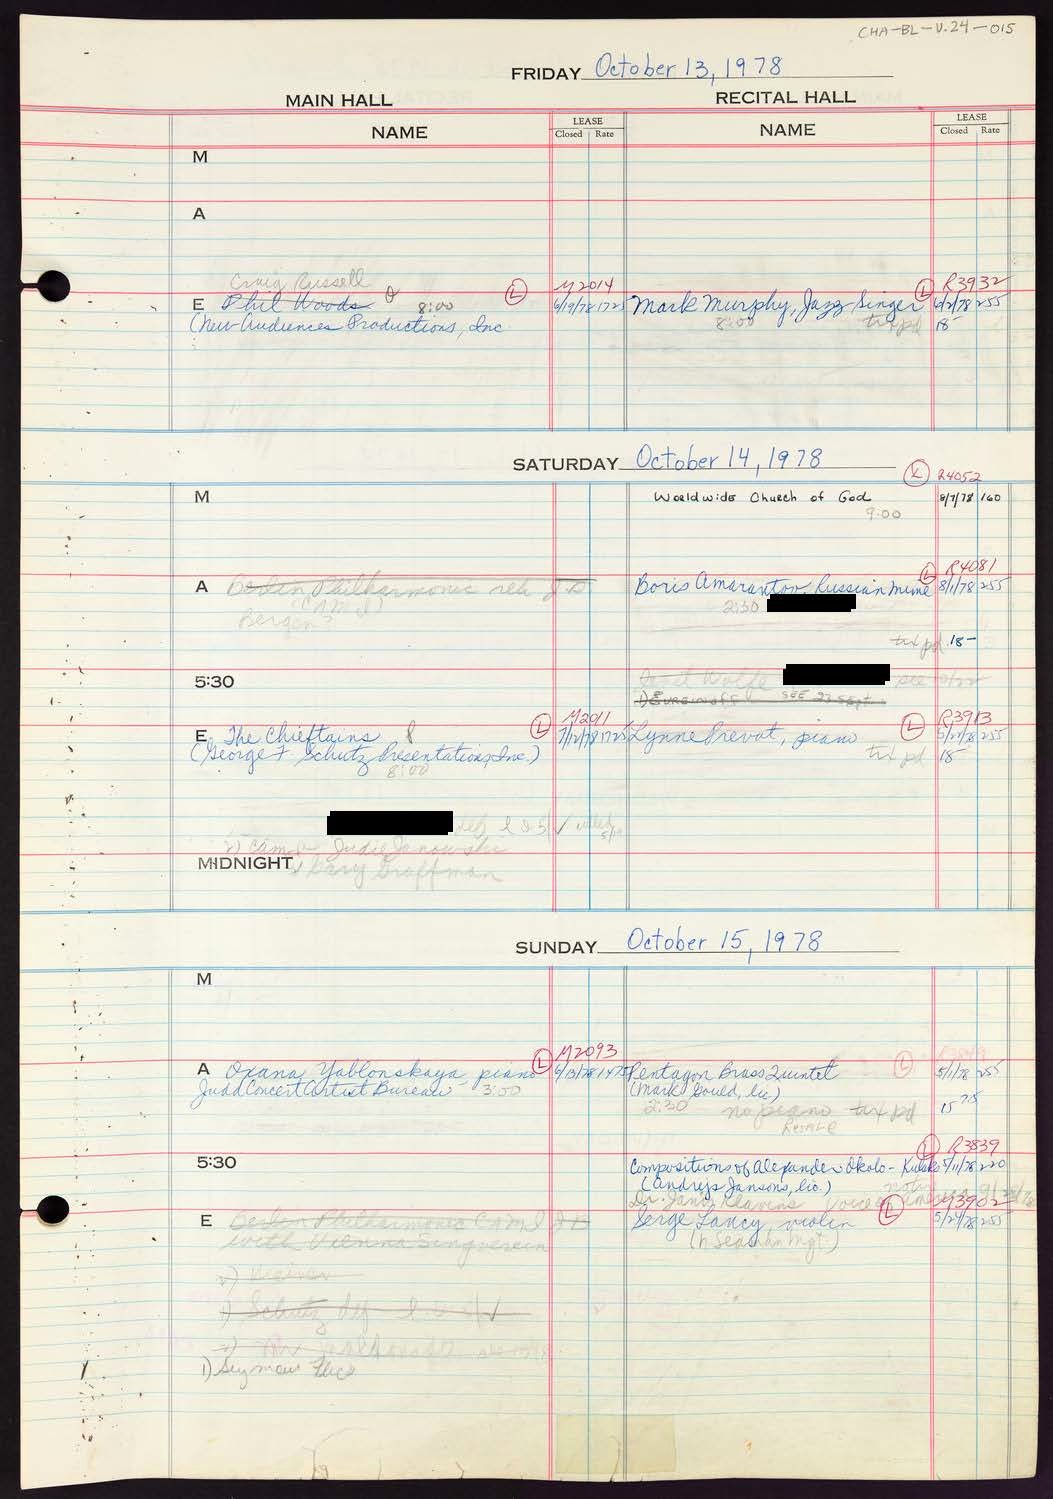 CHA-BL-V.24-015
FRIDAY October 13, 1978
MAIN HALL
RECITAL HALL
NAME
LEASE
Closed Rate
NAME
LEASE
Closed Rate
M
A
Craig Russell
L M2014
L R3932
E Phil Woods 8:00 6/19/78 1725
Mark Murphy, Jazz Singer 6/2/78 255
(New Audiences Productions, Inc
8:00 tax pd 18-
SATURDAY October 14, 1978
L R4052
M
Worldwide Church of God 8/7/78 160
9:00
L R4081
A Berlin Philharmonic reh J.D.
Boris Amarantov, Russian Mime 8/1/78 255
(CAMI)
2:30
Bergen?
tax pd 18-
5:30
Janet Wolfe see
SEE 23 Sept
L M2011
L R3913
E The Chieftains 7/12/78 1725
Lynne Prevot, piano 5/22/78 255
(George F Schutz Presentations, Inc.)
8:00
tax pd 18-
def
2) Cami Judie Janowski
MIDNIGHT
Gary Graffman
SUNDAY October 15, 1978
M
L M2093
L
A Oxana Yablonskaya piano 6/13/78 1475
Pentagon Brass Quintet 5/1/78 255
Judd Concert Artist Bureau 3:00
(Mark Gould, lic)
2:30 no piano tax pd 15 75
Resale
L R3839
5:30
Compositions of Alexander Okolo-Kulak 5/11/78 220
(Andrejs Jansons, lic.)
Dr. Janis Klavins voice
L M3902
E Berlin Philharmonic CAMI J D
Serge Lancy, violin 5/24/78 255
with Vienna Singverein
(h Seaman Mgt)
Schutz def
1) Seymour